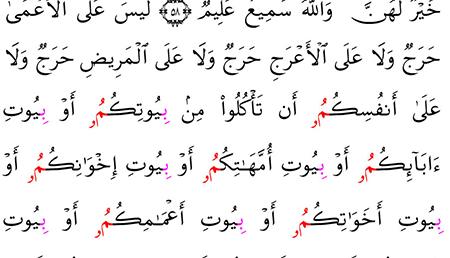 خَيْرٌ لَّهُنَّ وَٱللَّهُ سَمِيعٌ عَلِيمٌ ۝٥٨ لَيْسَ عَلَى ٱلْأَعْمَىٰ
حَرَجٌ وَلَا عَلَى ٱلْأَعْرَجِ حَرَجٌ وَلَا عَلَى ٱلْمَرِيضِ حَرَجٌ وَلَا
عَلَىٰ أَنفُسِكُمُۥ أَن تَأْكُلُوا۟ مِنۢ بِيُوتِكُمُۥ أَوْ بِيُوتِ
ءَابَآئِكُمُۥ أَوْ بِيُوتِ أُمَّهَٰتِكُمُۥ أَوْ بِيُوتِ إِخْوَٰنِكُمُۥ أَوْ
بِيُوتِ أَخَوَٰتِكُمُۥ أَوْ بِيُوتِ أَعْمَٰمِكُمُۥ أَوْ بِيُوتِ